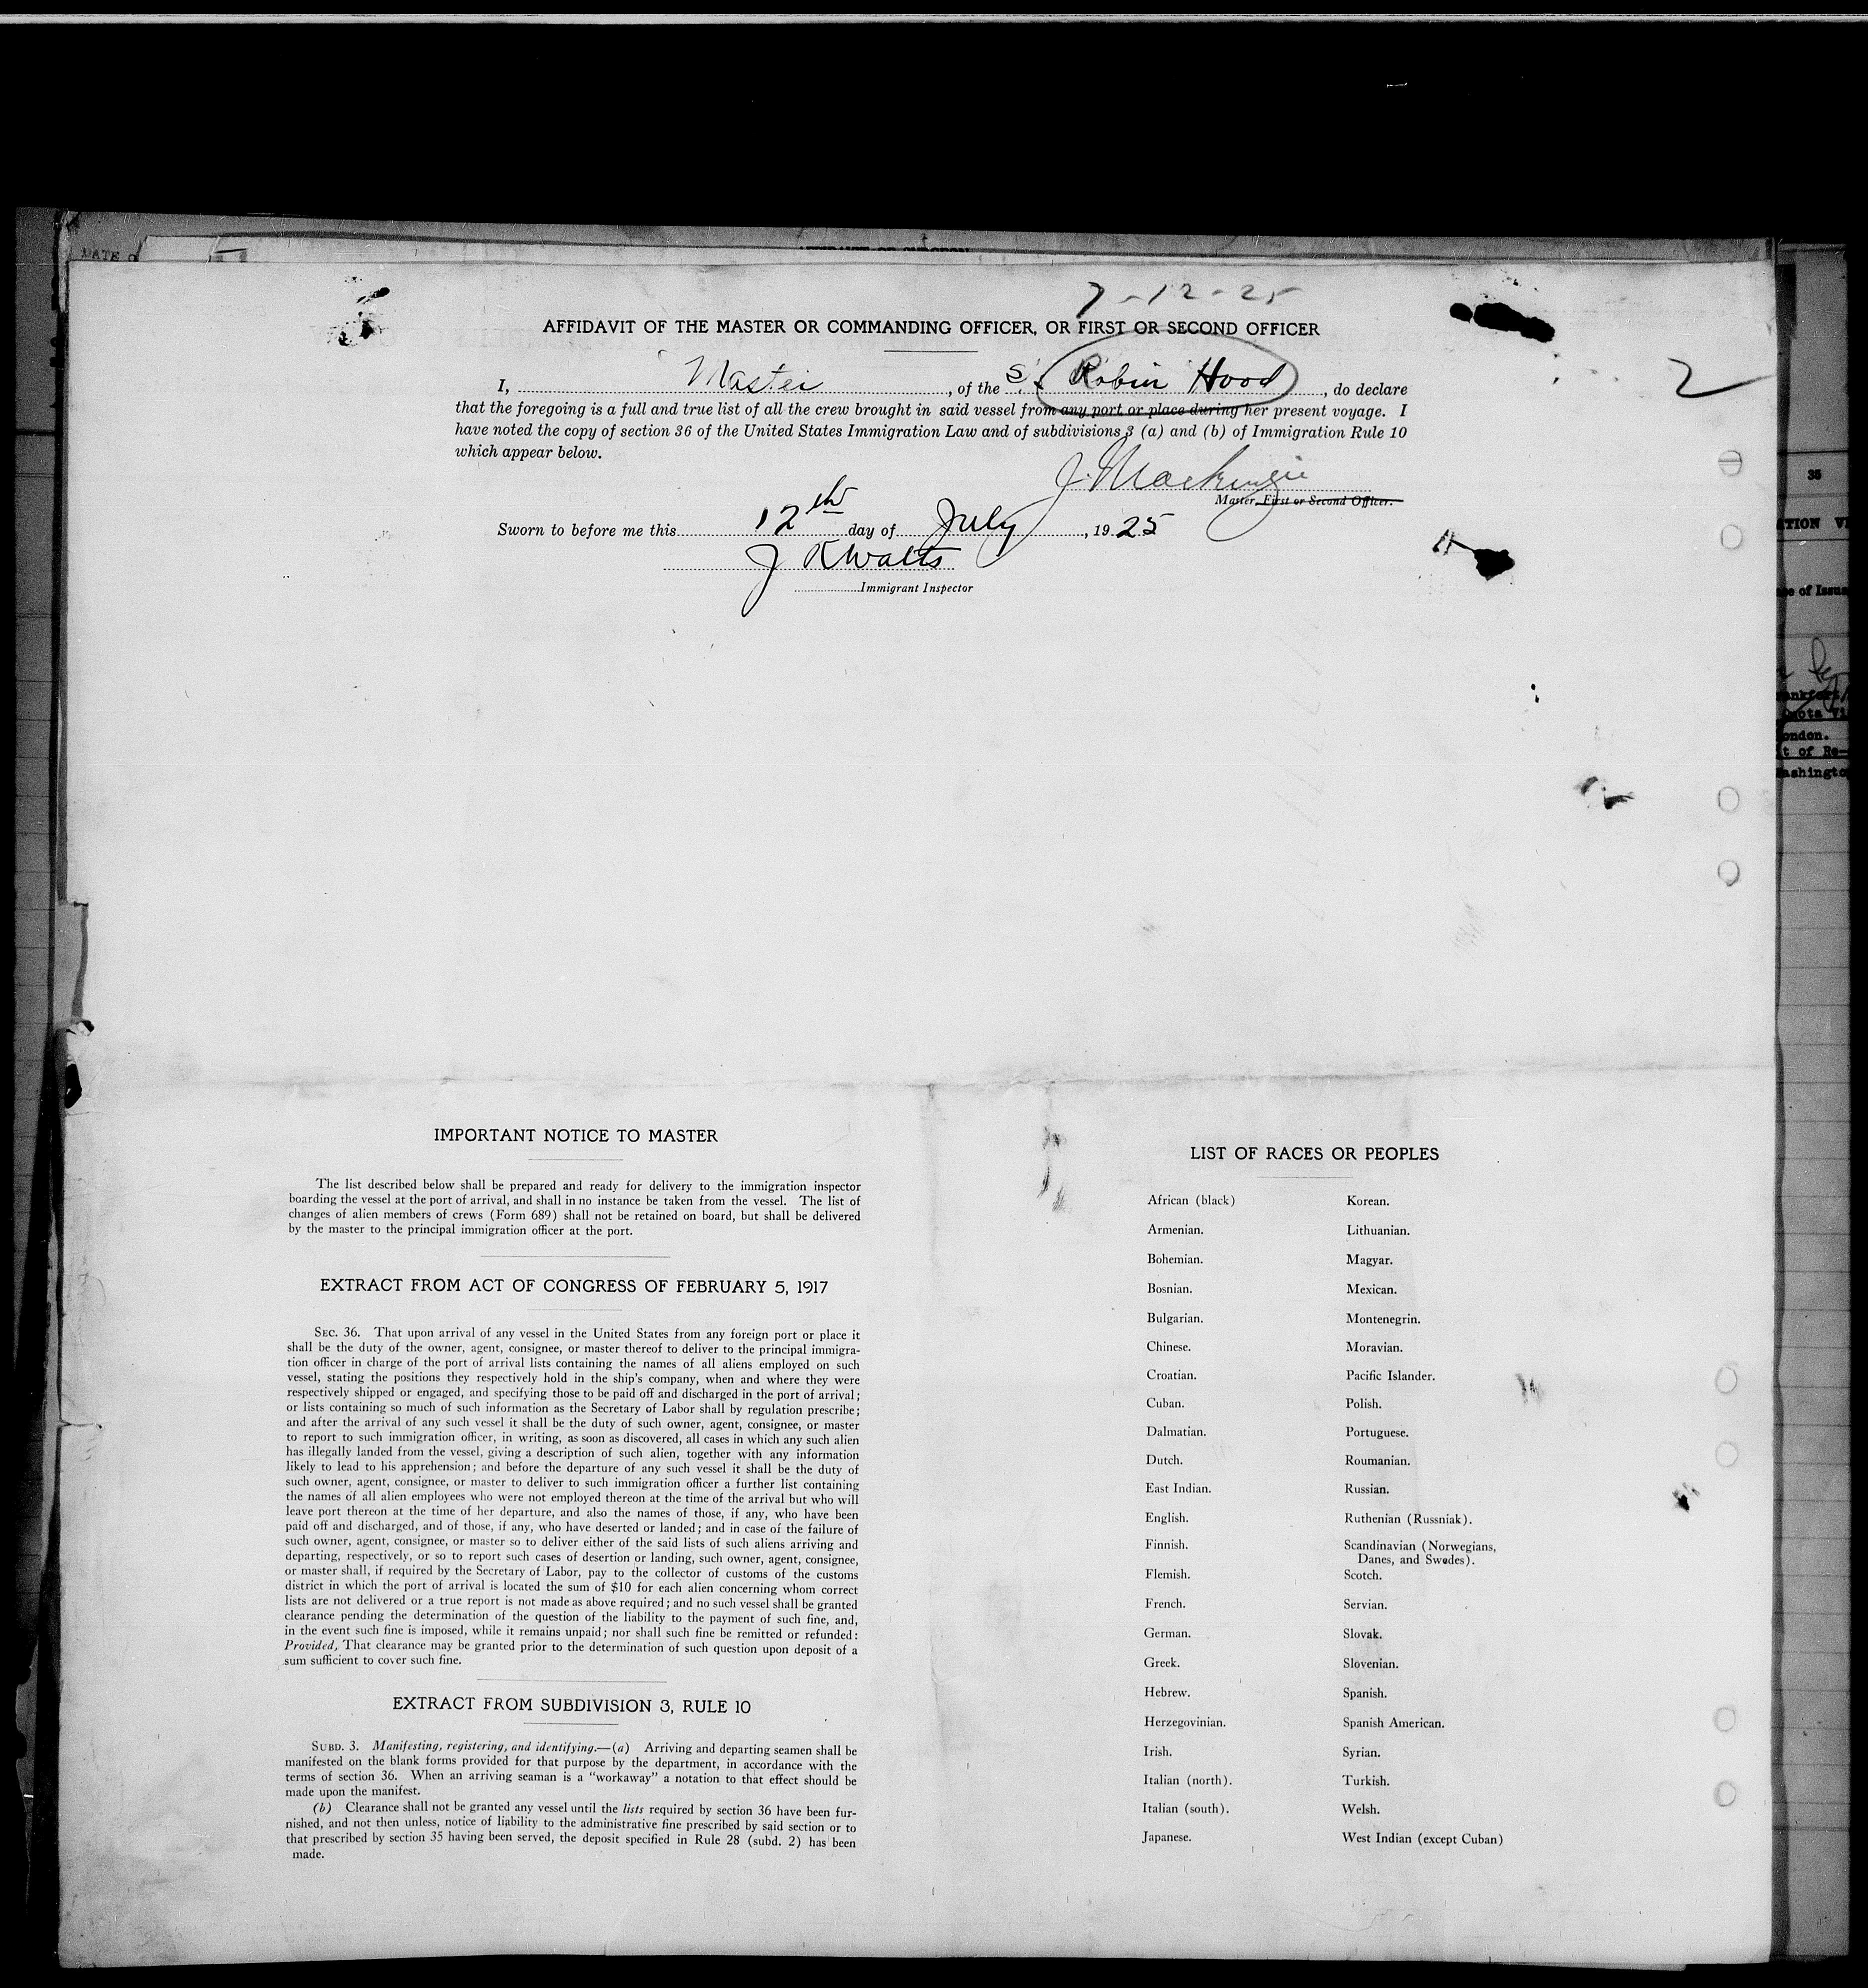 DATE O
7-12-25
AFFIDAVIT OF THE MASTER OR COMMANDING OFFICER, OR FIRST OR SECOND OFFICER
2
I, Master, of the S. Robin Hood, do declare
that the foregoing is a full and true list of all the crew brought in said vessel from any port or place during her present voyage. I
have noted the copy of section 36 of the United States Immigration Law and of subdivisions 3 (a) and (b) of Immigration Rule 10
which appear below.
J. Mackenzie
Master, First or Second Officer.
Sworn to before me this 12th day of July, 1925
J R Watts
Immigrant Inspector
35
TION V
e of Issu
ondon.
t of Re-
ashingto
IMPORTANT NOTICE TO MASTER
The list described below shall be prepared and ready for delivery to the immigration inspector
boarding the vessel at the port of arrival, and shall in no instance be taken from the vessel. The list of
changes of alien members of crews (Form 689) shall not be retained on board, but shall be delivered
by the master to the principal immigration officer at the port.
EXTRACT FROM ACT OF CONGRESS OF FEBRUARY 5, 1917
SEC. 36. That upon arrival of any vessel in the United States from any foreign port or place it
shall be the duty of the owner, agent, consignee, or master thereof to deliver to the principal immigra-
tion officer in charge of the port of arrival lists containing the names of all aliens employed on such
vessel, stating the positions they respectively hold in the ship's company, when and where they were
respectively shipped or engaged, and specifying those to be paid off and discharged in the port of arrival;
or lists containing so much of such information as the Secretary of Labor shall by regulation prescribe;
and after the arrival of any such vessel it shall be the duty of such owner, agent, consignee, or master
to report to such immigration officer, in writing, as soon as discovered, all cases in which any such alien
has illegally landed from the vessel, giving a description of such alien, together with any information
likely to lead to his apprehension; and before the departure of any such vessel it shall be the duty of
such owner, agent, consignee, or master to deliver to such immigration officer a further list containing
the names of all alien employees who were not employed thereon at the time of the arrival but who will
leave port thereon at the time of her departure, and also the names of those, if any, who have been
paid off and discharged, and of those, if any, who have deserted or landed; and in case of the failure of
such owner, agent, consignee, or master so to deliver either of the said lists of such aliens arriving and
departing, respectively, or so to report such cases of desertion or landing, such owner, agent, consignee,
or master shall, if required by the Secretary of Labor, pay to the collector of customs of the customs
district in which the port of arrival is located the sum of $10 for each alien concerning whom correct
lists are not delivered or a true report is not made as above required; and no such vessel shall be granted
clearance pending the determination of the question of the liability to the payment of such fine, and,
in the event such fine is imposed, while it remains unpaid; nor shall such fine be remitted or refunded:
Provided, That clearance may be granted prior to the determination of such question upon deposit of a
sum sufficient to cover such fine.
EXTRACT FROM SUBDIVISION 3, RULE 10
SUBD. 3. Manifesting, registering, and identifying.—(a) Arriving and departing seamen shall be
manifested on the blank forms provided for that purpose by the department, in accordance with the
terms of section 36. When an arriving seaman is a "workaway" a notation to that effect should be
made upon the manifest.
(b) Clearance shall not be granted any vessel until the lists required by section 36 have been fur-
nished, and not then unless, notice of liability to the administrative fine prescribed by said section or to
that prescribed by section 35 having been served, the deposit specified in Rule 28 (subd. 2) has been
made.
LIST OF RACES OR PEOPLES
African (black)
Armenian.
Bohemian.
Bosnian.
Bulgarian.
Chinese.
Croatian.
Cuban.
Dalmatian.
Dutch.
East Indian.
English.
Finnish.
Flemish.
French.
German.
Greek.
Hebrew.
Herzegovinian.
Irish.
Italian (north).
Italian (south).
Japanese.
Korean.
Lithuanian.
Magyar.
Mexican.
Montenegrin.
Moravian.
Pacific Islander.
Polish.
Portuguese.
Roumanian.
Russian.
Ruthenian (Russniak).
Scandinavian (Norwegians,
Danes, and Swedes).
Scotch.
Servian.
Slovak.
Slovenian.
Spanish.
Spanish American.
Syrian.
Turkish.
Welsh.
West Indian (except Cuban)